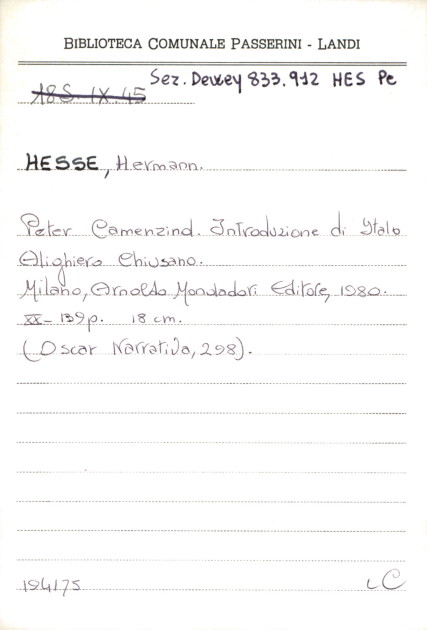 BIBLIOTECA COMUNALE PASSERINI - LANDI
Sez. Dewey 833.912 HES Pe
18S. IX. 45
HESSE, Hermann.
Peter Camenzind. Introduzione di Italo
Alighiero Chiusano.
Milano, Arnoldo Mondadori Editore, 1980.
XX- 139p. 18 cm.
(Oscar Narrativa, 298).
194175 LC